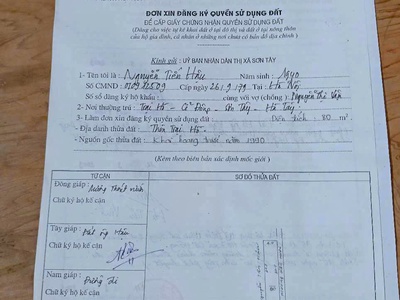 ĐƠN XIN ĐĂNG KÝ QUYỀN SỬ DỤNG ĐẤT
ĐỂ CẤP GIẤY CHỨNG NHẬN QUYỀN SỬ DỤNG ĐẤT
(Dùng cho việc tự kê khai đất ở tại đô thị và đất ở tại nông thôn
của hộ gia đình, cá nhân ở những nơi chưa có bản đồ địa chính)
Kính gửi : UỶ BAN NHÂN DÂN THỊ XÃ SƠN TÂY
1- Tên tôi là : Nguyễn Tiến Hậu Năm sinh :
Số CMND : Cấp ngày 26/9/79 Tại Hà Nội
Số sổ đăng ký hộ khẩu : cùng với vợ (chồng) : Nguyễn Thị
2- Nơi thường trú : Trại Hồ - Cổ Đông - Sơn Tây - Hà Tây
3- Làm đơn xin đăng ký quyền sử dụng đất : Diện tích : m²
- Địa danh thửa đất : Thôn Trại Hồ
- Nguồn gốc thửa đất : Khai hoang năm 1990
(Kèm theo biên bản xác định mốc giới)
TỨ CẬN
SƠ ĐỒ THỬA ĐẤT
Đông giáp :
Chữ ký hộ kế cận
Tây giáp : ông Hậu
Chữ ký hộ kế cận
Nam giáp : Đường đi
Chữ ký hộ kế cận